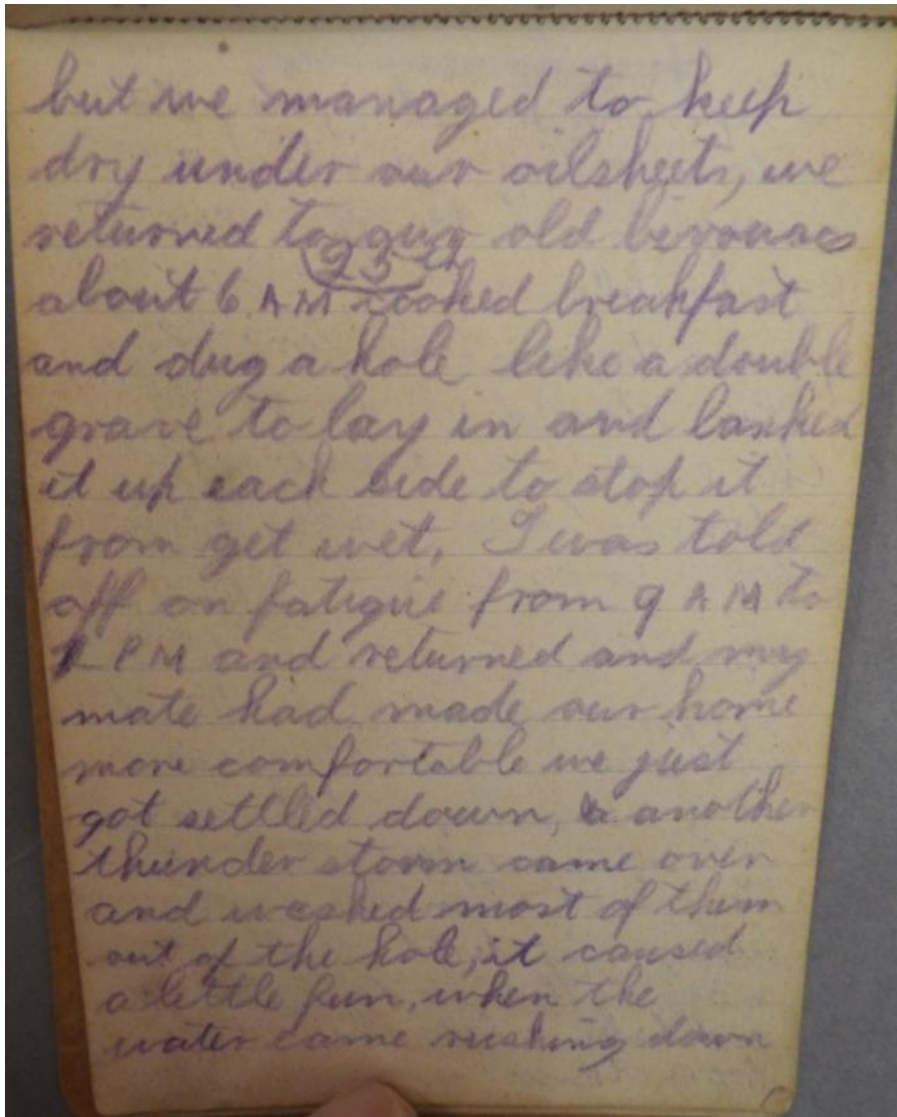 but we managed to keep
dry under our oilsheets, we
returned to our old bivouacs
(23rd)
about 6 AM cooked breakfast
and dug a hole like a double
grave to lay in and banked
it up each side to stop it
from get wet, I was told
off on fatigue from 9 AM to
PM and returned and my
mate had made our home
more comfortable we just
got settled down, & another
thunder storm came over
and washed most of them
out of the hole, it caused
a little fun, when the
water came rushing down